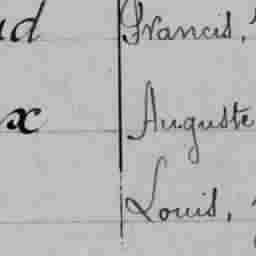 ud Francis,
x Auguste
Louis,